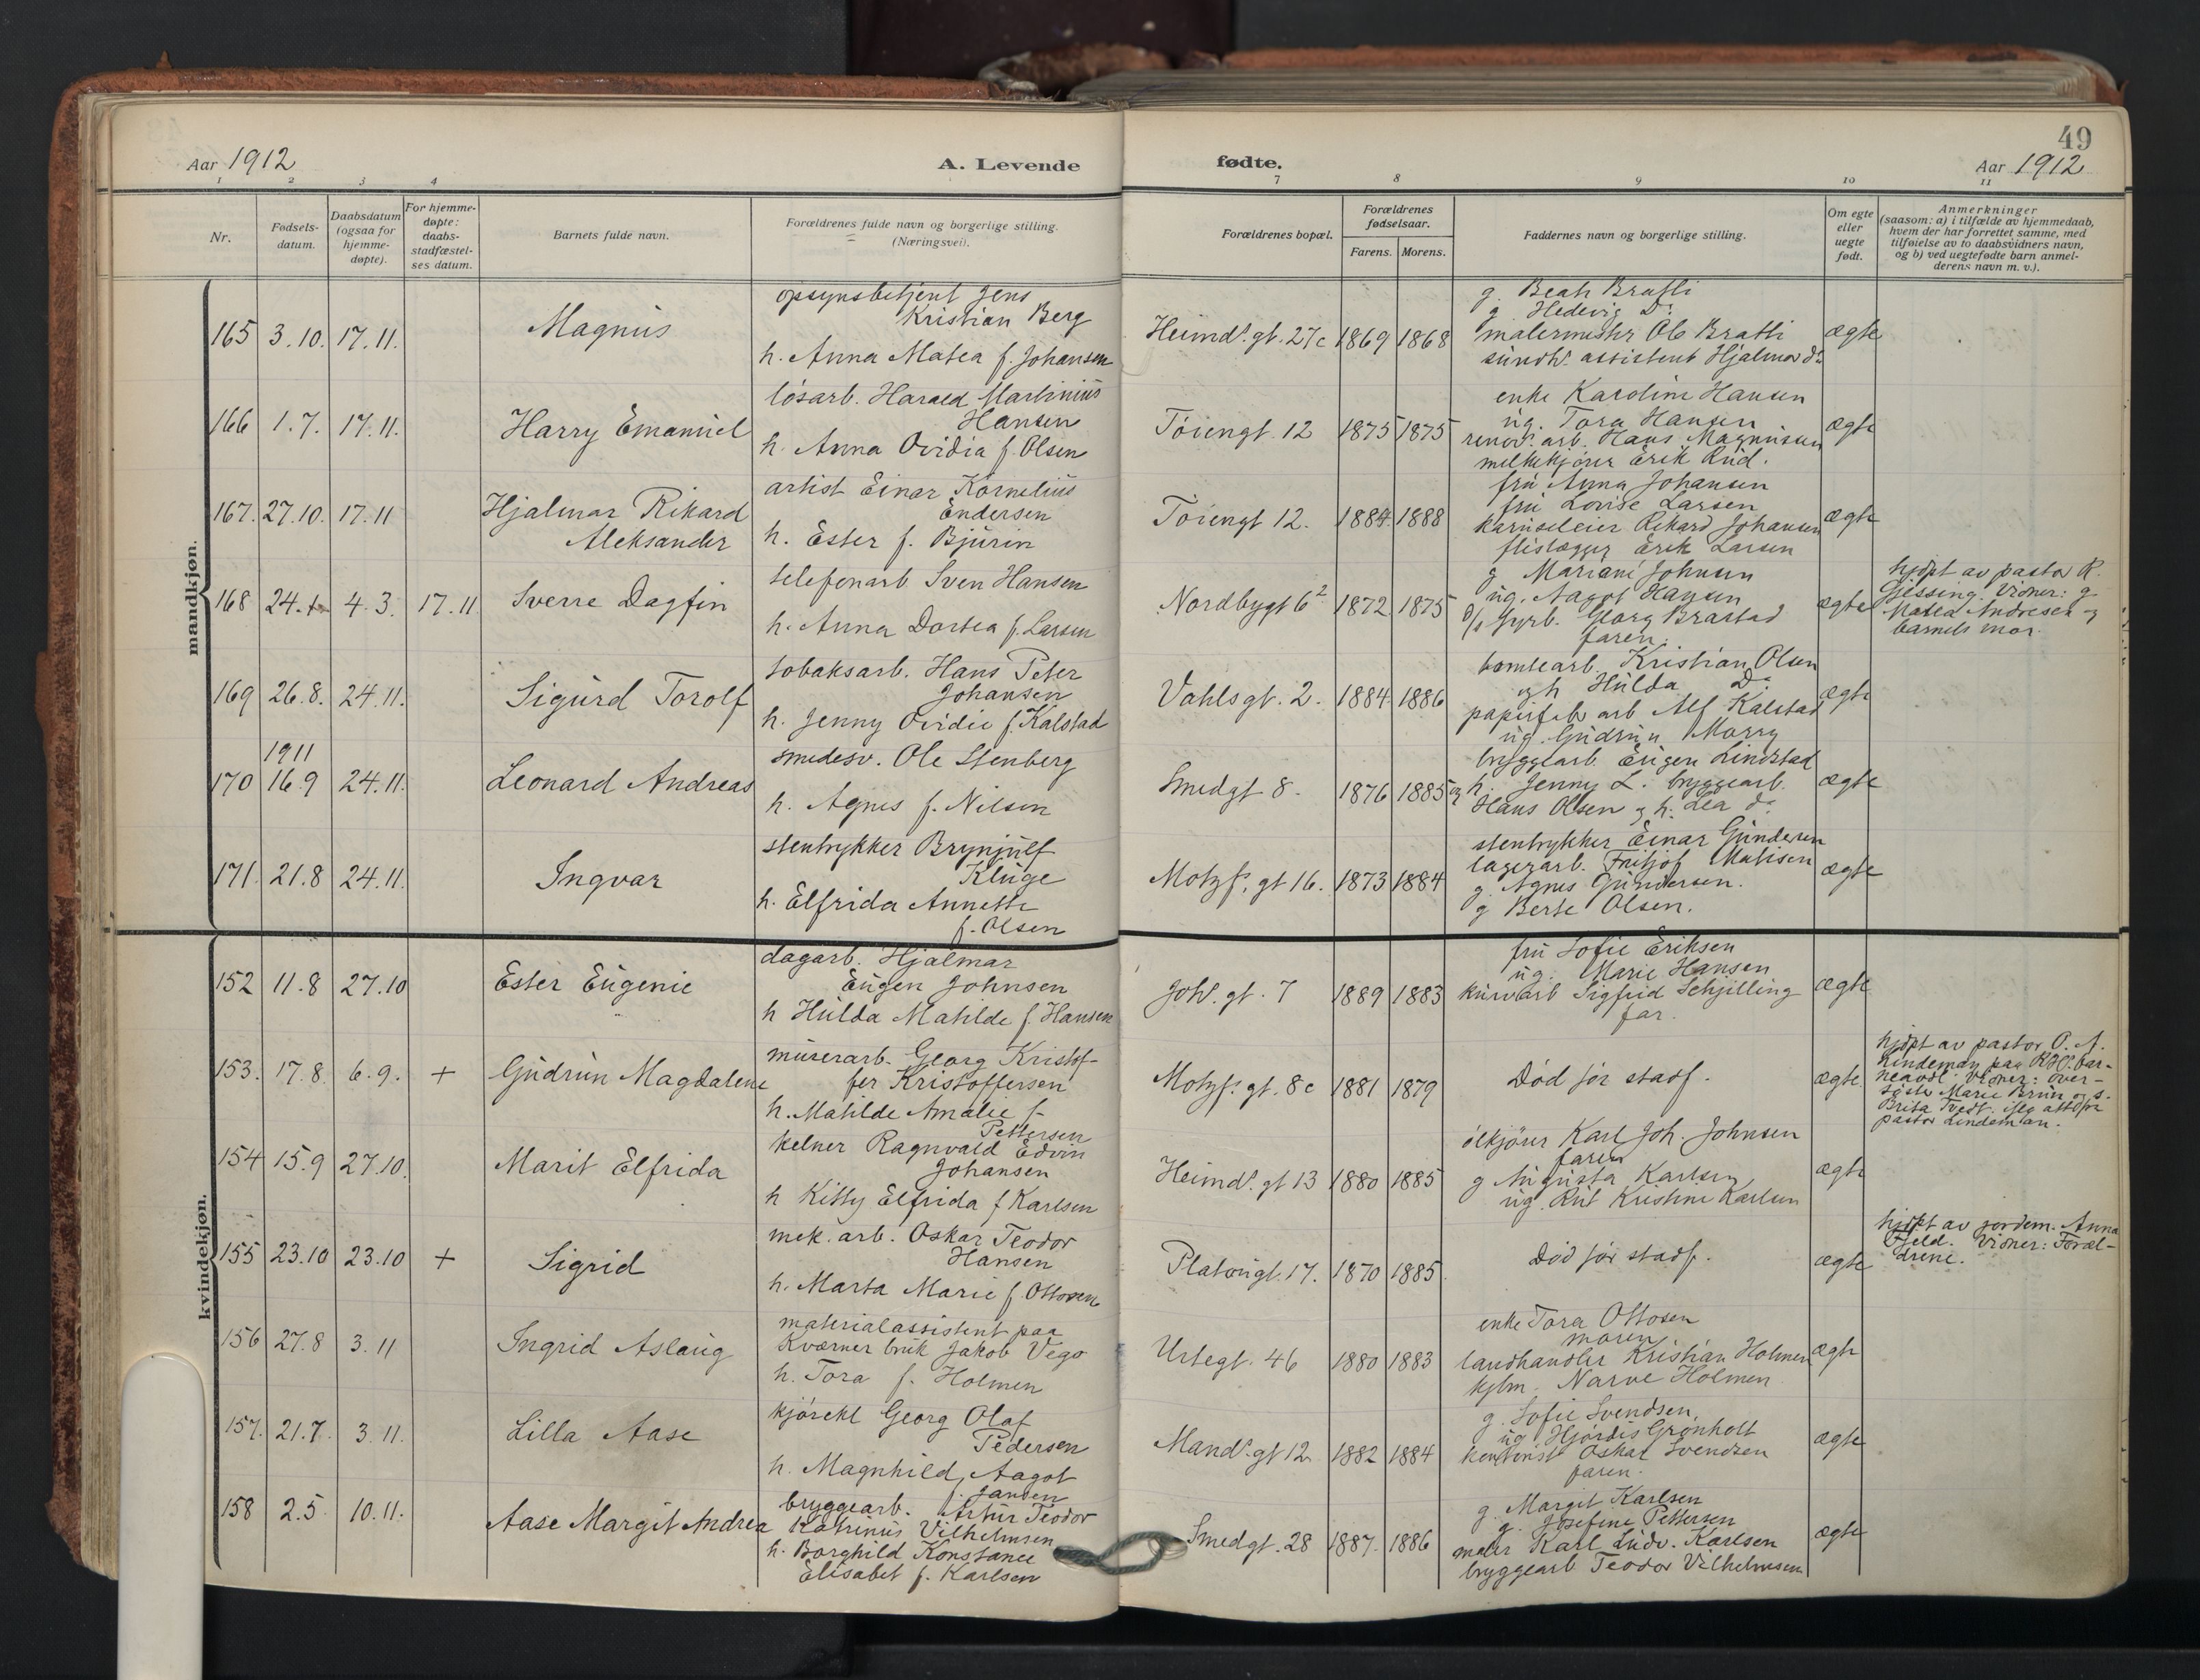 49
Aar 1912
A. Levende
fødte.
Aar 1912
1 2 3 4
7 8 9 10 11
Nr.
Fødsels-
datum.
Daabsdatum
(ogsaa for
hjemme-
døpte).
For hjemme-
døpte:
daabs-
stadfæstel-
ses datum.
Barnets fulde navn.
Forældrenes fulde navn og borgerlige stilling.
(Næringsvei).
Forældrenes bopæl.
Forældrenes
fødselsaar.
Farens. Morens.
Faddernes navn og borgerlige stilling.
Om egte
eller
uegte
født.
Anmerkninger
(saasom: a) i tilfælde av hjemmedaab,
hvem der har forrettet samme, med
tilføielse av to daabsvidners navn,
og b) ved uegtefødte barn anmel-
derens navn m. v.).
mandkjøn.
165 3.10. 17.11. Magnus
opsynsbetjent Jens
Kristian Berg
h. Anna Matea f. Johansen
Heimds. gt. 27c 1869 1868
g. Beate Bratli
g. Hedevig Do
malermester Ole Bratli
sundh. assistent Hjalmar do
ægte
166 1.7. 17.11. Harry Emanuel
løsarb. Harald Martinius
Hansen
h. Anna Ovidia f. Olsen
Tøiengt. 12 1875 1875
enke Karoline Hansen
ug. Tora Hansen
renov. arb. Hans Magnussen
melkekjører Erik Rud.
ægte
167. 27.10. 17.11 Hjalmar Rikard
Aleksander
artist Einar Kornelius
Endersen
h. Ester f. Bjurin
Tøiengt 12. 1884 1888
fru Anna Johansen
fru Lovise Larsen
karuseleier Rikard Johansen
flislægger Erik Larsen
ægte
168 24. 4.3. 17.11 Sverre Dagfin
telefonarb Sven Hansen
h. Anna Dortea f. Larsen
Nordbygt 6² 1872 1875
g Mariane Johnsen
ug. Aagot Hansen
fyrb. Georg Brastad
faren.
ægte
hjdpt av pastor R.
Gjessing. Vidner: g
Matea Andresen og
barnets mor.
169 26.8. 24.11. Sigurd Torolf
tobaksarb. Hans Peter
Johansen
h. Jenny Ovidie f. Kalstad
Vahlsgt. 2. 1884 1886
tomtearb. Kristian Olsen
og h Hulda Do
papirfabr arb Alf Kalstad
ug. Gudrun Morry
ægte
1911
170 16.9 24.11. Leonard Andreas
smedesv. Ole Stenberg
h. Agnes f. Nilsen
Smedgt 8. 1876 1885
bryggearb Eugen Lindstad
og h. Jenny L. bryggearb.
Hans Olsen og h. Lea do
ægte
171. 21.8 24.11. Ingvar
stentrykker Brynjulf
Kluge
h. Elfrida Annette
f. Olsen
Motzfs. gt 16. 1873 1884
stentrykker Einar Gundersen
lagerarb. Fritjof Matisen
g. Agnes Gundersen.
g Berte Olsen.
ægte
kvindekjøn.
152 11.8 27.10 Ester Eugenie
dagarb. Hjalmar
Eugen Johnsen
h Hulda Matilde f. Hansen
Johs. gt. 7 1889 1883
fru Sofie Eriksen
ug. Marie Hansen
kurvarb Sigfrid Schjilling
far.
ægte
153. 17.8. 6.9. + Gudrun Magdalene
murerarb. Georg Kristof-
fer Kristoffersen
h. Matilde Amalie f.
Pettersen
Motzfs. gt. 8c 1881 1879
Død før stadf.
ægte
hjdpt av pastor O. A.
Lindeman paa R.H. bar-
neavdl. Vidner: over-
søster Marie Bruun og s.
Brita Tvedt. iflg attest fra
pastor Lindeman.
154 15.9 27.10. Marit Elfrida
kelner Ragnvald Edvin
Johansen
h Kitty Elfrida f Karlsen
Heimds. gt 13 1880 1885
ølkjører Karl Joh. Johnsen
faren
g Augusta Karlsen
ug. Rut Kristine Karlsen
ægte
155 23.10 23.10 + Sigrid
mek. arb. Oskar Teodor
Hansen
h. Marta Marie f. Ottosen
Platougt. 17. 1870 1885
Død før stadf.
ægte
hjdpt av jordem. Anna
Fjeld. Vidner: Foræl-
drene.
156 27.8 3.11 Ingrid Aslaug
materialassistent paa
Kværner bruk Jakob Vego
h. Tora f. Holmen
Urtegt. 46 1880 1883
enke Tora Ottosen
moren
landhandler Kristian Holmen
kjbm. Narve Holmen
ægte
157. 21.7. 3.11. Lilla Aase
kjørekl Georg Olaf
Pedersen
h. Magnhild Aagot
f. Jansen
Mands. gt 12 1882 1884
g. Sofie Svendsen
ug Hjørdis Grønholt
Oskar Svendsen
faren.
ægte
158 2.5. 10.11. Aase Margit Andrea
bryggearb. Artur Teodor
Katrinus Vilhelmsen
h. Borghild Konstance
Elisabet f. Karlsen
Smedgt. 28 1887. 1886
g. Margit Karlsen
g. Josefine Pettersen
maler Karl Ludv. Karlsen
bryggearb Teodor Vilhelmsen
ægte